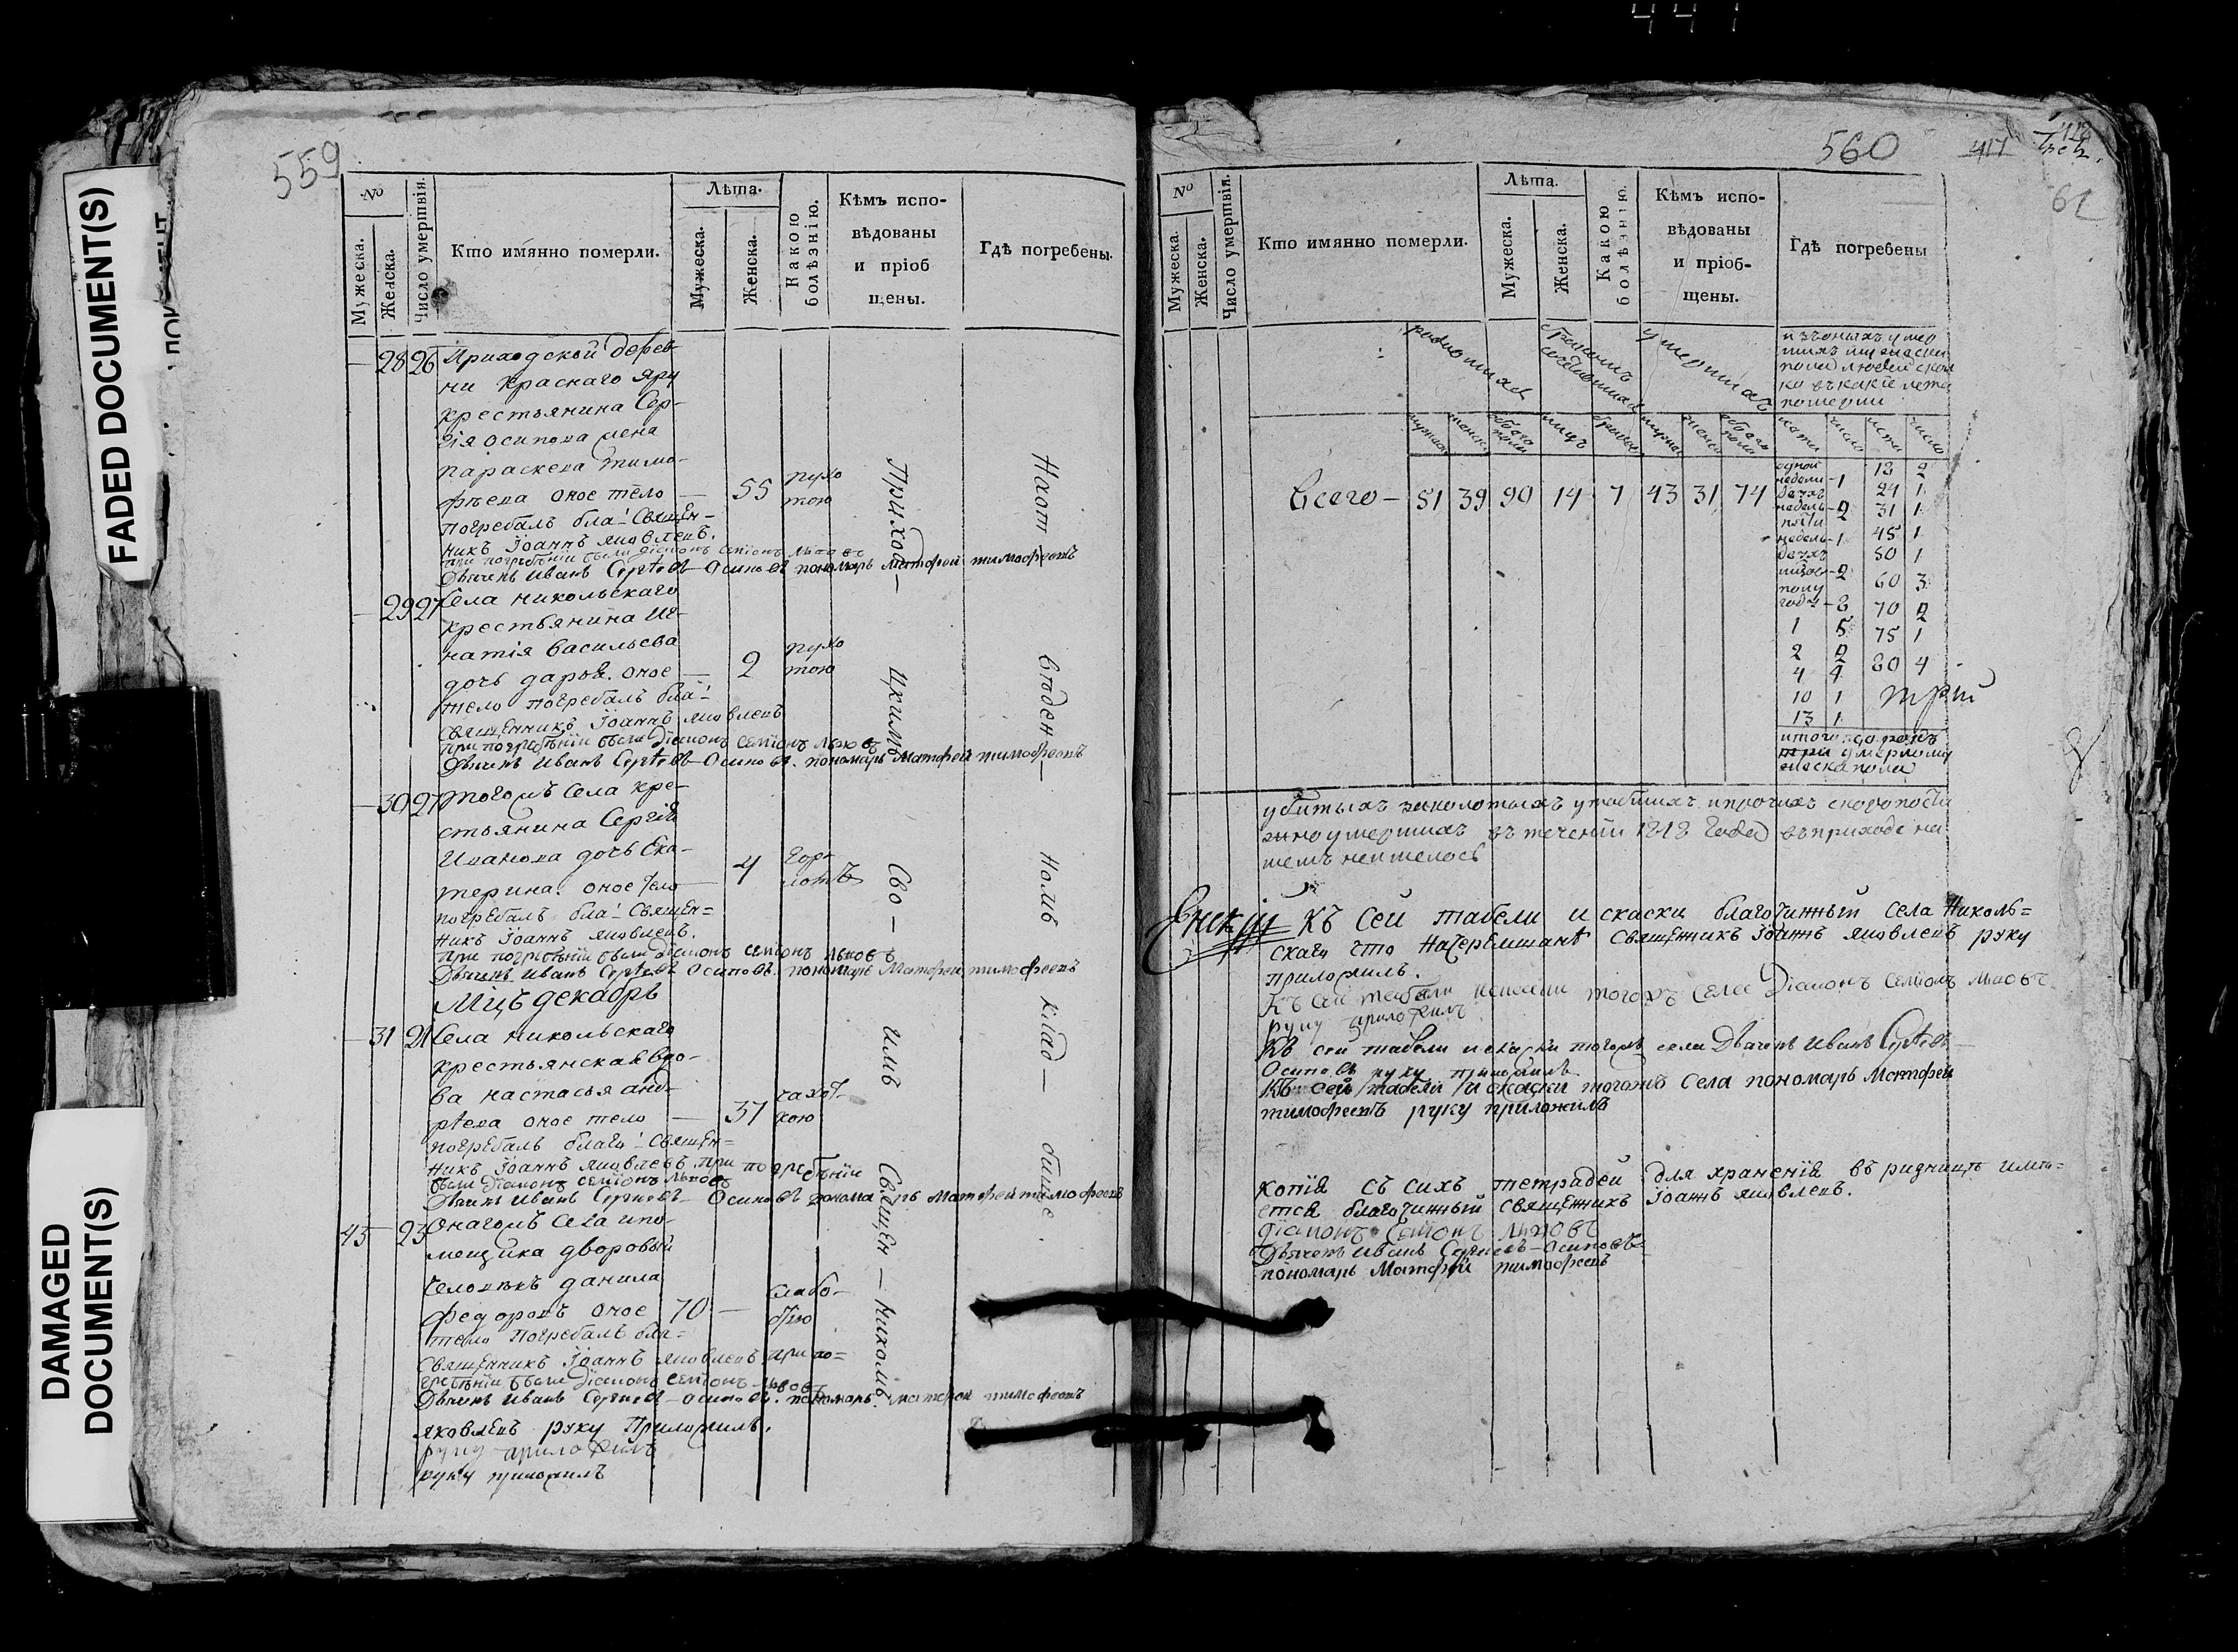 441
FADED DOCUMENT(S)
DAMAGED
DOCUMENT(S)
559
№
Мужеска.
Женска.
Число умертвія.
Кто имянно померли.
Лѣта.
Мужеска.
Женска.
Какою болѣзнію.
Кѣмъ испо-
вѣдованы
и пріоб
щены.
Гдѣ погребены.
28 26 Приходской дерев
ни Краснаго яру
крестьянина Сер-
гія осипова жена
параскева тимо-
фѣева оное тело — 55 пухо
тою
погребалъ бла: Священ-
никъ Іоаннъ яковлевъ.
при погребѣніи были діаконъ семіонъ львовъ
Дьячекъ Иванъ Сергѣевъ Осиповъ пономарь матфей тимофеевъ
29 27 Села никольскаго
крестьянина Иг-
натія васильева
дочь дарья. оное — 2 пухо
тою
тело погребалъ бла:
священникъ Іоаннъ яковлевъ
при погребѣніи были діаконъ семіонъ львовъ
Дьячекъ Иванъ Сергѣевъ Осиповъ. пономарь Матфей тимофеевъ
30 27 тогожъ села кре-
стьянина Сергія
Иванова дочь Ека-
терина. оное тело 4
погребалъ бла: Священ=
никъ Іоаннъ яковлевъ.
при погребѣніи были діаконъ семіонъ львовъ
Дьячекъ Иванъ Сергѣевъ Осиповъ. пономарь Матфей тимофеевъ
Мцъ декабрь
31 21 Села никольскаго
крестьянская вдо-
ва настасья анд-
рѣева оное тело — 37 чахот-
кою
погребалъ благо: Священ=
никъ Іоаннъ яковлевъ. при погребѣніи
были діаконъ семіонъ львовъ
Дьячекъ Иванъ Сергѣевъ Осиповъ пономарь матфей тимофеевъ
43 23 Онагожъ села по-
мещика дворовый
человѣкъ данила
федоровъ оное 70 — слабо-
стію
тело погребалъ бла=
священникъ Іоаннъ яковлевъ при по=
гребѣніи были діаконъ семіонъ львовъ
Дьячекъ Иванъ Сергѣевъ Осиповъ. пономарь. матфей тимофеевъ
яковлевъ руку Приложилъ.
руку приложилъ
руку приложилъ
Приход— скимъ Сво— имъ Священ— никомъ.
Наот— веден— номъ клад— бище.
560
417
418
62
№
Мужеска.
Женска.
Число умертвія.
Кто имянно померли.
Лѣта.
Мужеска.
Женска.
Какою болѣзнію.
Кѣмъ испо-
вѣдованы
и пріоб-
щены.
Гдѣ погребены
умершихъ
лета число лета число
Всего — 51 39 90 14 7 43 31 74
одной
недели - 1
двухъ
недель - 2
недель - 1
двухъ
1 5
2 2
4 4
10 1
13 1
18 2
24 1
31 1
45 1
50 1
60 3
70 2
75 1
80 4
убитыхъ заколотыхъ утопшихъ и прочихъ скоропости
жно умершихъ въ теченіи 1818 года въ приходе на
шемъ неимелось
Къ сей табели и скаски благочинный села Николь=
скаго что Начеремшанѣ священникъ Іоаннъ яковлевъ руку
приложилъ.
Къ сей табели и скаски тогожъ села Діаконъ Семіонъ Львовъ
руку приложилъ
Къ сей табели и скаски тогожъ села Дьячекъ Иванъ Сергѣевъ
Осиповъ руку приложилъ
Къ сей табели и скаски тогожъ села пономарь Матфей
тимофеевъ руку приложилъ
копія съ сихъ тетрадей для храненія въ ризницѣ имѣ=
ется благочинный священникъ Іоаннъ яковлевъ.
Діаконъ Семіонъ Львовъ
Дьячекъ Иванъ Сергѣевъ Осиповъ
пономарь Матфей тимофеевъ